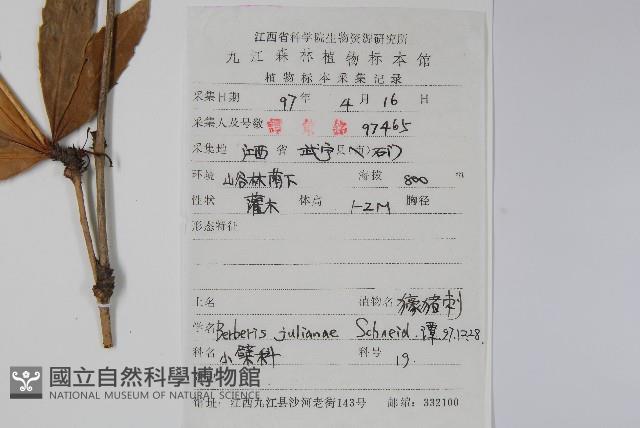 江西省科学院生物资源研究所
九江森林植物标本馆
植物标本采集记录
采集日期 97年 4月 16日
采集人及号数 97465
采集地 江西省武宁县(市)石门
环境 山谷林荫下 海拨 800 m
性状 灌木 体高 1-2M 胸径
形态特征
土名 植物名 豪猪刺
学名 Berberis julianae Schneid. 谭 97.12.28.
科名 小檗科 科号 19.
國立自然科學博物館
NATIONAL MUSEUM OF NATURAL SCIENCE
馆址: 江西九江县沙河老街143号 邮编: 332100